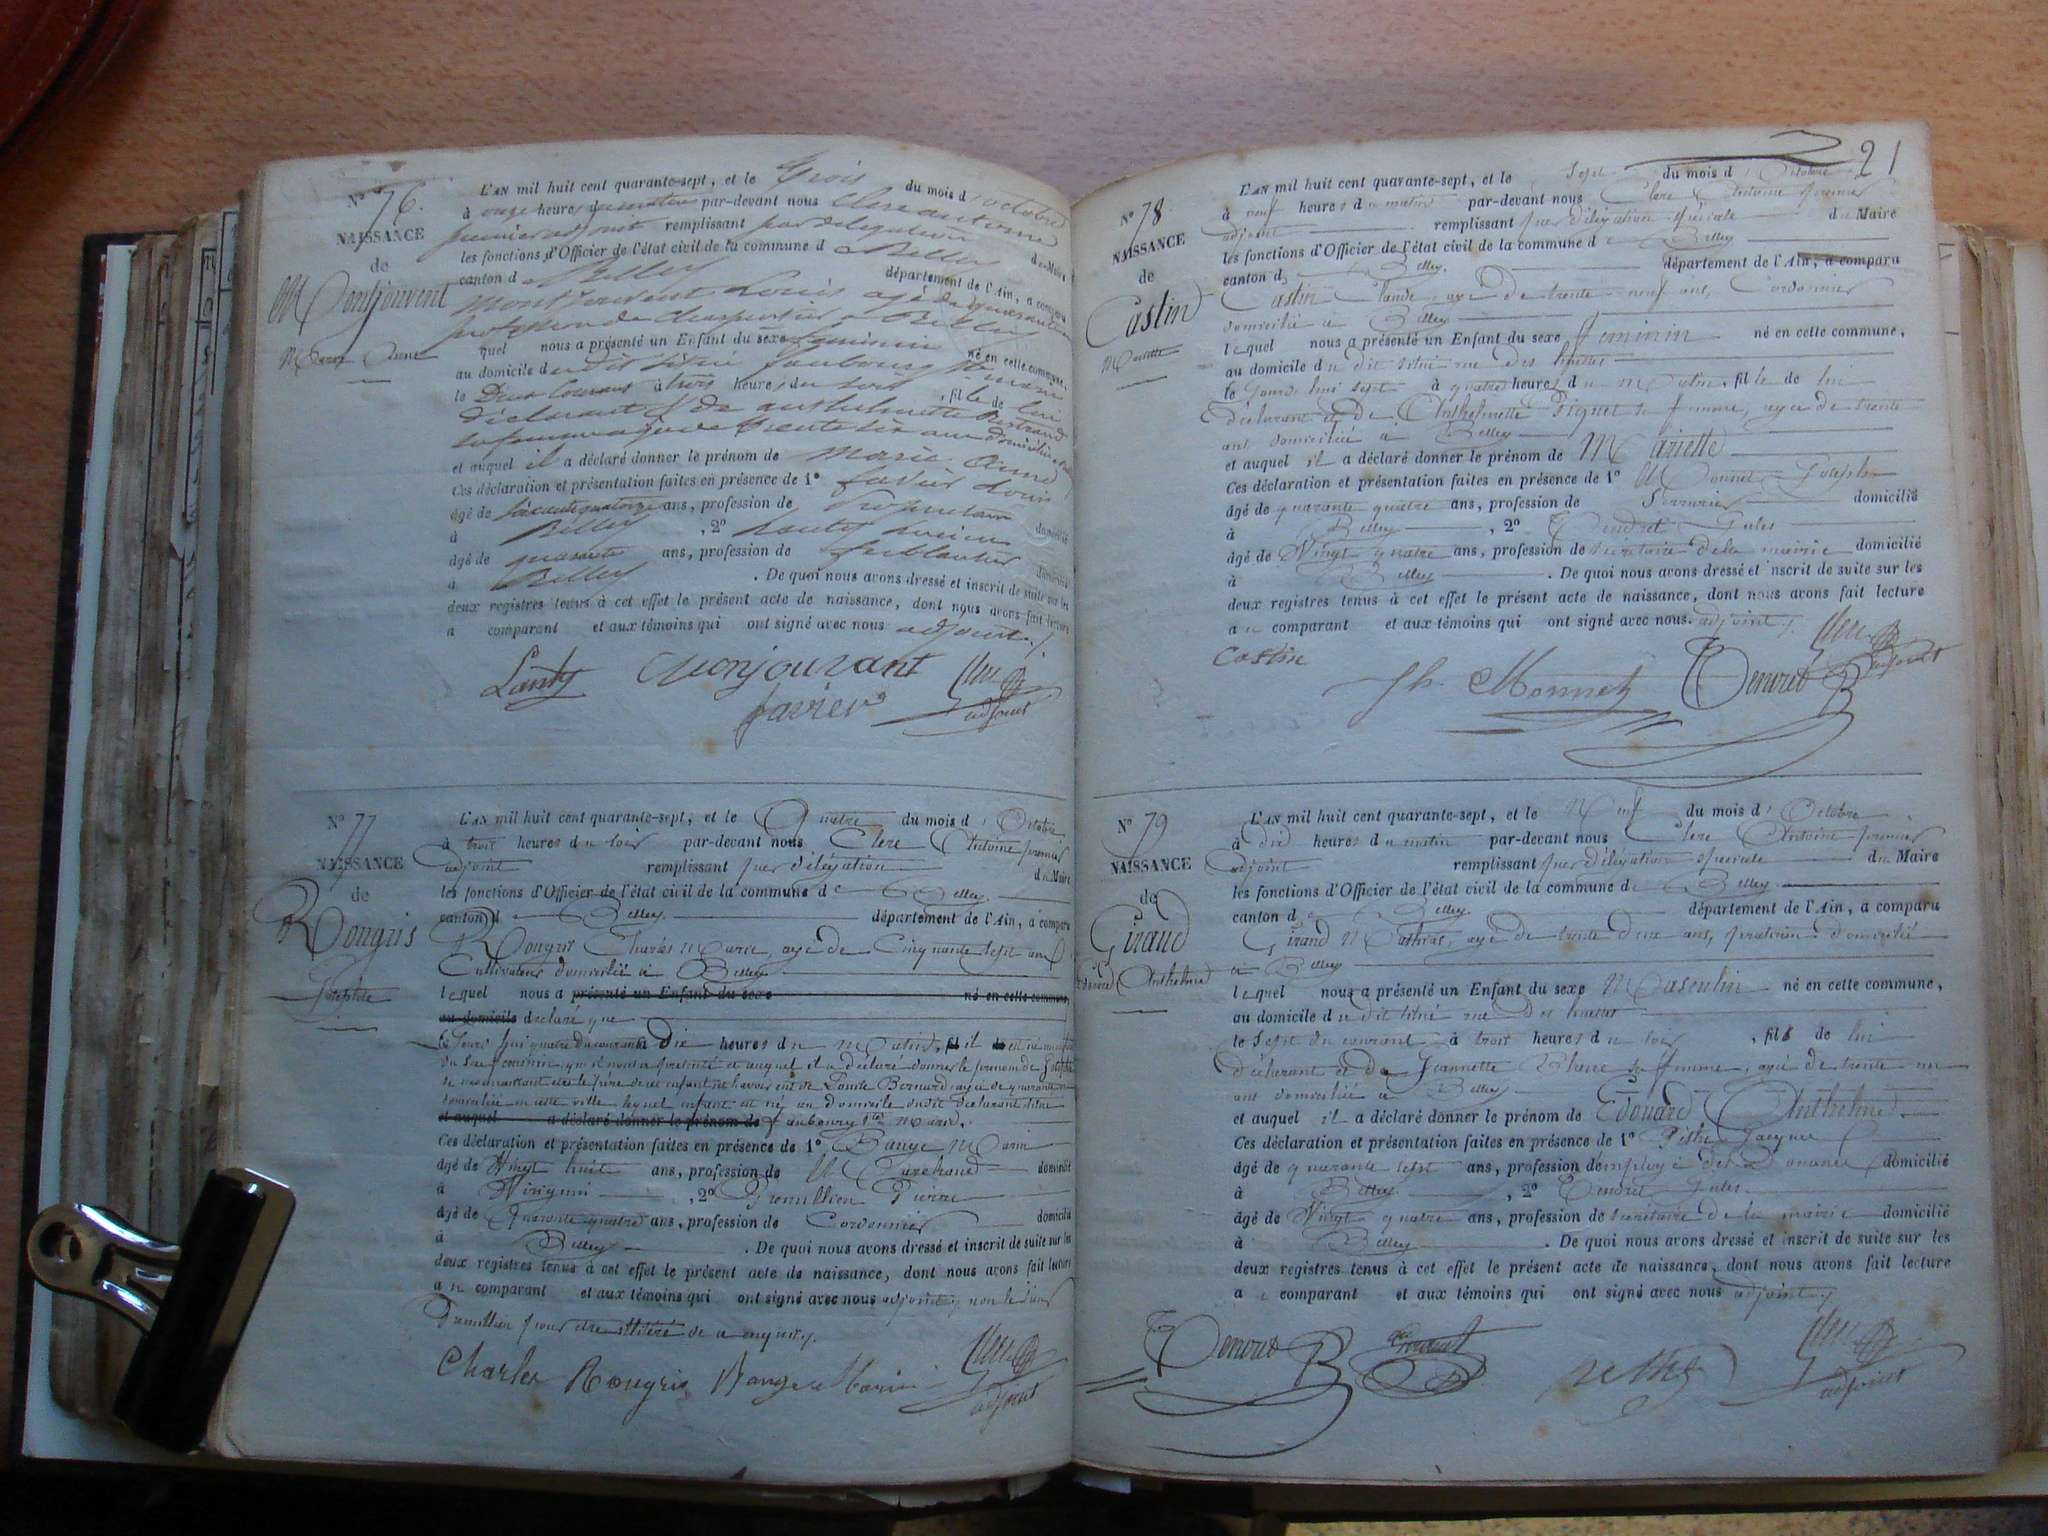 N° 76.
NAISSANCE
de
Montjouvent
Marie Anne
L'AN mil huit cent quarante-sept, et le Trois du mois d'octobre
à onze heures du matin par-devant nous Clerc antoine
premier adjoint remplissant par délégation du Maire
les fonctions d'Officier de l'état civil de la commune de Belley
canton de Belley département de l'Ain, a comparu
Montjouvent Louis agé de quarante
profession de charpentier à Belley
quel nous a présenté un Enfant du sexe féminin né en cette commune,
au domicile du dit situé faubourg St marin
le Deux Courant à trois heures du soir, fille de lui
déclarant & de anthelmette Bertrand
sa femme agée de trente six ans domiciliée
et auquel il a déclaré donner le prénom de Marie Anne
Ces déclaration et présentation faites en présence de 1° favier Louis
âgé de soixante quatorze ans, profession de Propriétaire domicilié
à Belley, 2° Lanty
âgé de quarante ans, profession de ferblantier domicilié
à Belley. De quoi nous avons dressé et inscrit de suite sur les
deux registres tenus à cet effet le présent acte de naissance, dont nous avons fait lecture
a comparant et aux témoins qui ont signé avec nous adjoint./.
Lanty Monjouvant Clerc
favier adjoint
N° 77
NAISSANCE
de
Rougris
Josephte
L'AN mil huit cent quarante-sept, et le Quatre du mois d'Octobre
à trois heures du soir par-devant nous Clerc Antoine premier
adjoint remplissant par délégation du Maire
les fonctions d'Officier de l'état civil de la commune de Belley
canton de Belley département de l'Ain, a comparu
Rougris Charles Marie, agé de Cinquante sept ans
Cultivateur domicilié à Belley
lequel nous a présenté un Enfant du sexe né en cette commune,
au domicile déclaré que
le Jourd'hui quatre du courant à Dix heures du Matin, fil il est né un enfant
du sexe féminin, qu'il nous a présenté et auquel il a déclaré donner le prénom de Josephte
se reconnaissant être le père de cet enfant et l'avoir eu de Bernard, agée de quarante
domiciliée en cette ville lequel enfant est né au domicile dudit déclarant situé
et auquel a déclaré donner le prénom de faubourg St Marin.
Ces déclaration et présentation faites en présence de 1° Bange Marin
âgé de Vingt huit ans, profession de Marchand domicilié
à Virignin, 2° Dremillieu Pierre
âgé de Quarante quatre ans, profession de Cordonnier domicilié
à Belley. De quoi nous avons dressé et inscrit de suite sur les
deux registres tenus à cet effet le présent acte de naissance, dont nous avons fait lecture
au comparant et aux témoins qui ont signé avec nous adjoint, non le sieur
Dremillieu pour être illitéré de ce enquis.
Charles Rougris Bange Marin Clerc
adjoint
21
N° 78
NAISSANCE
de
Castin
Mariette
L'AN mil huit cent quarante-sept, et le Sept du mois d'Octobre
à neuf heures du matin par-devant nous Clerc Antoine premier
adjoint remplissant par délégation spéciale du Maire
les fonctions d'Officier de l'état civil de la commune de Belley
canton de Belley département de l'Ain, a comparu
Castin Claude, agé de trente-neuf ans, Cordonnier
domicilié à Belley
lequel nous a présenté un Enfant du sexe féminin né en cette commune,
au domicile du dit situé rue des
le Jourd'hui sept à quatre heures du Matin, fille de lui
déclarant et de Anthelmette Piquet sa femme, agée de trente
ans domiciliée à Belley
et auquel il a déclaré donner le prénom de Mariette
Ces déclaration et présentation faites en présence de 1° Monnet Joseph
âgé de quarante quatre ans, profession de Serrurier domicilié
à Belley, 2° Tendret Jules
âgé de Vingt quatre ans, profession de secrétaire de la mairie domicilié
à Belley. De quoi nous avons dressé et inscrit de suite sur les
deux registres tenus à cet effet le présent acte de naissance, dont nous avons fait lecture
au comparant et aux témoins qui ont signé avec nous. adjoint./.
Castin Jh. Monnet Tendret Clerc
adjoint
N° 79
NAISSANCE
de
Giraud
Edouard Anthelme
L'AN mil huit cent quarante-sept, et le Neuf du mois d'Octobre
à dix heures du matin par-devant nous Clerc Antoine premier
adjoint remplissant par délégation spéciale du Maire
les fonctions d'Officier de l'état civil de la commune de Belley
canton de Belley département de l'Ain, a comparu
Giraud Mathias, agé de trente deux ans, praticien domicilié
à Belley
lequel nous a présenté un Enfant du sexe Masculin né en cette commune,
au domicile du dit situé rue des
le Sept du courant à trois heures du soir, fils de lui
déclarant et de Jeannette sa femme, agée de trente un
ans domiciliée à Belley
et auquel il a déclaré donner le prénom de Edouard Anthelme
Ces déclaration et présentation faites en présence de 1° Jacques
âgé de quarante sept ans, profession d'employé des Douanes domicilié
à Belley, 2° Tendret Jules
âgé de Vingt quatre ans, profession de secrétaire de la mairie domicilié
à Belley. De quoi nous avons dressé et inscrit de suite sur les
deux registres tenus à cet effet le présent acte de naissance, dont nous avons fait lecture
au comparant et aux témoins qui ont signé avec nous adjoint./.
Tendret Clerc
adjoint